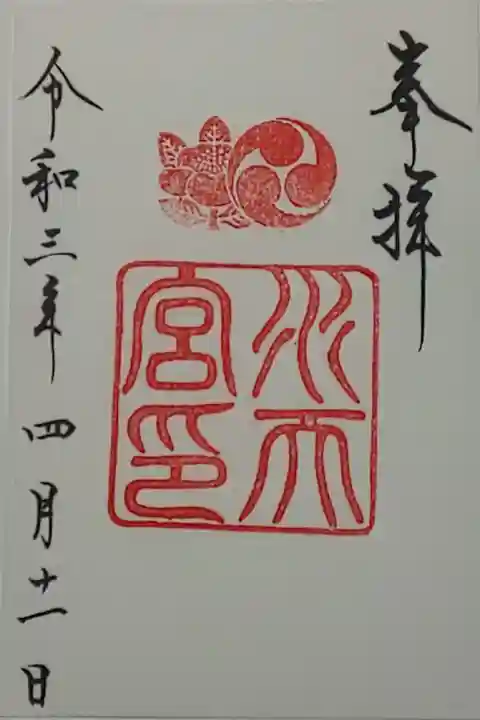 奉拝
水天
宮印
令和三年 四月十一日